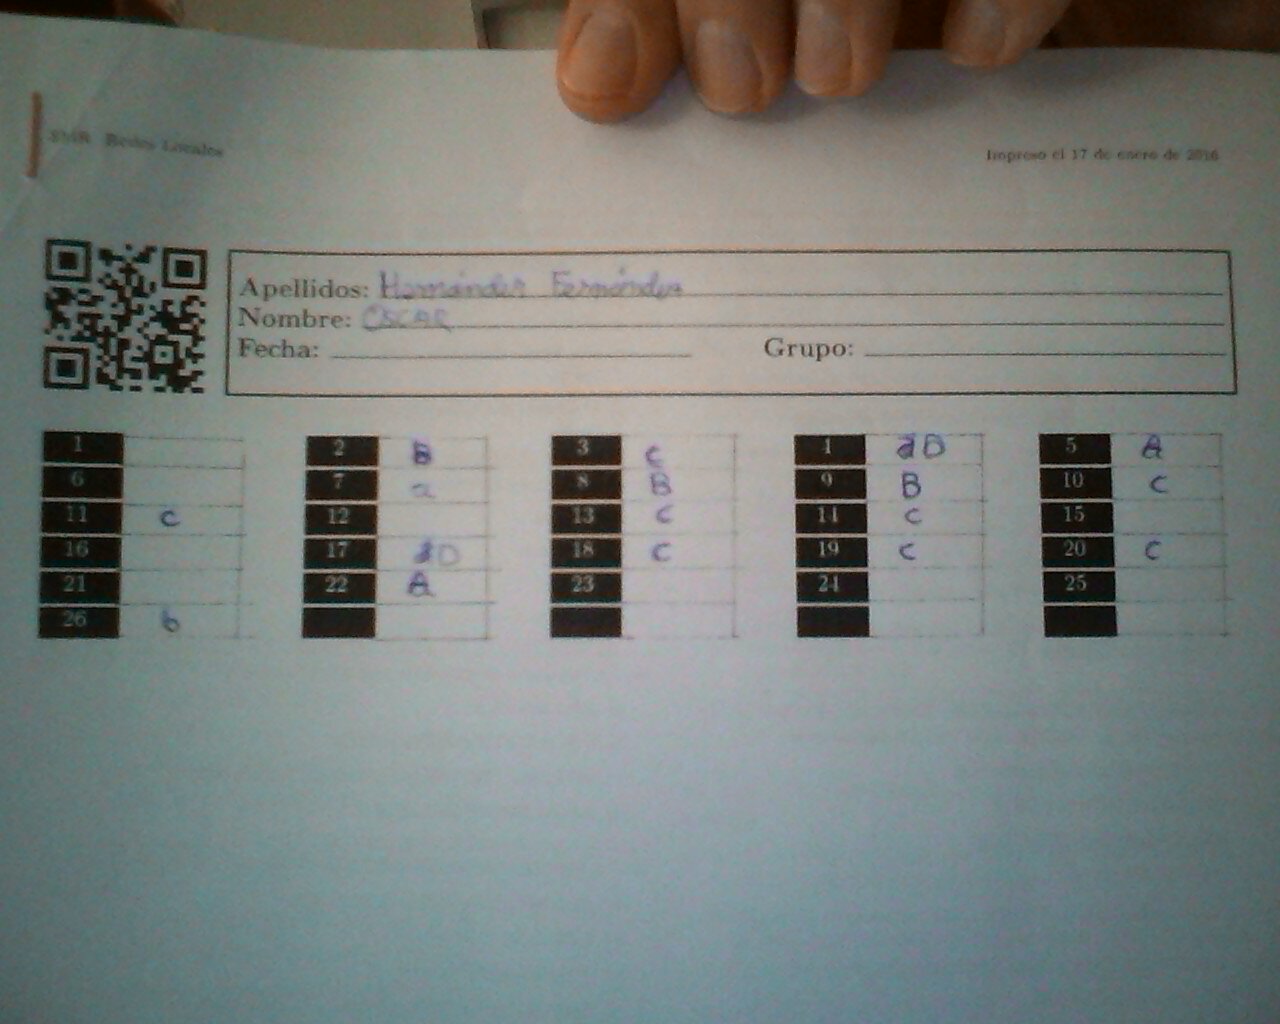 SMR Redes Locales
Impreso el 17 de enero de 2016
Apellidos: Hernández Fernández
Nombre: OSCAR
Fecha:
Grupo:
1 2 B 3 C 4 D 5 A
6 7 a 8 B 9 B 10 C
11 C 12 13 C 14 C 15
16 17 D 18 C 19 C 20 C
21 22 A 23 24 25
26 b